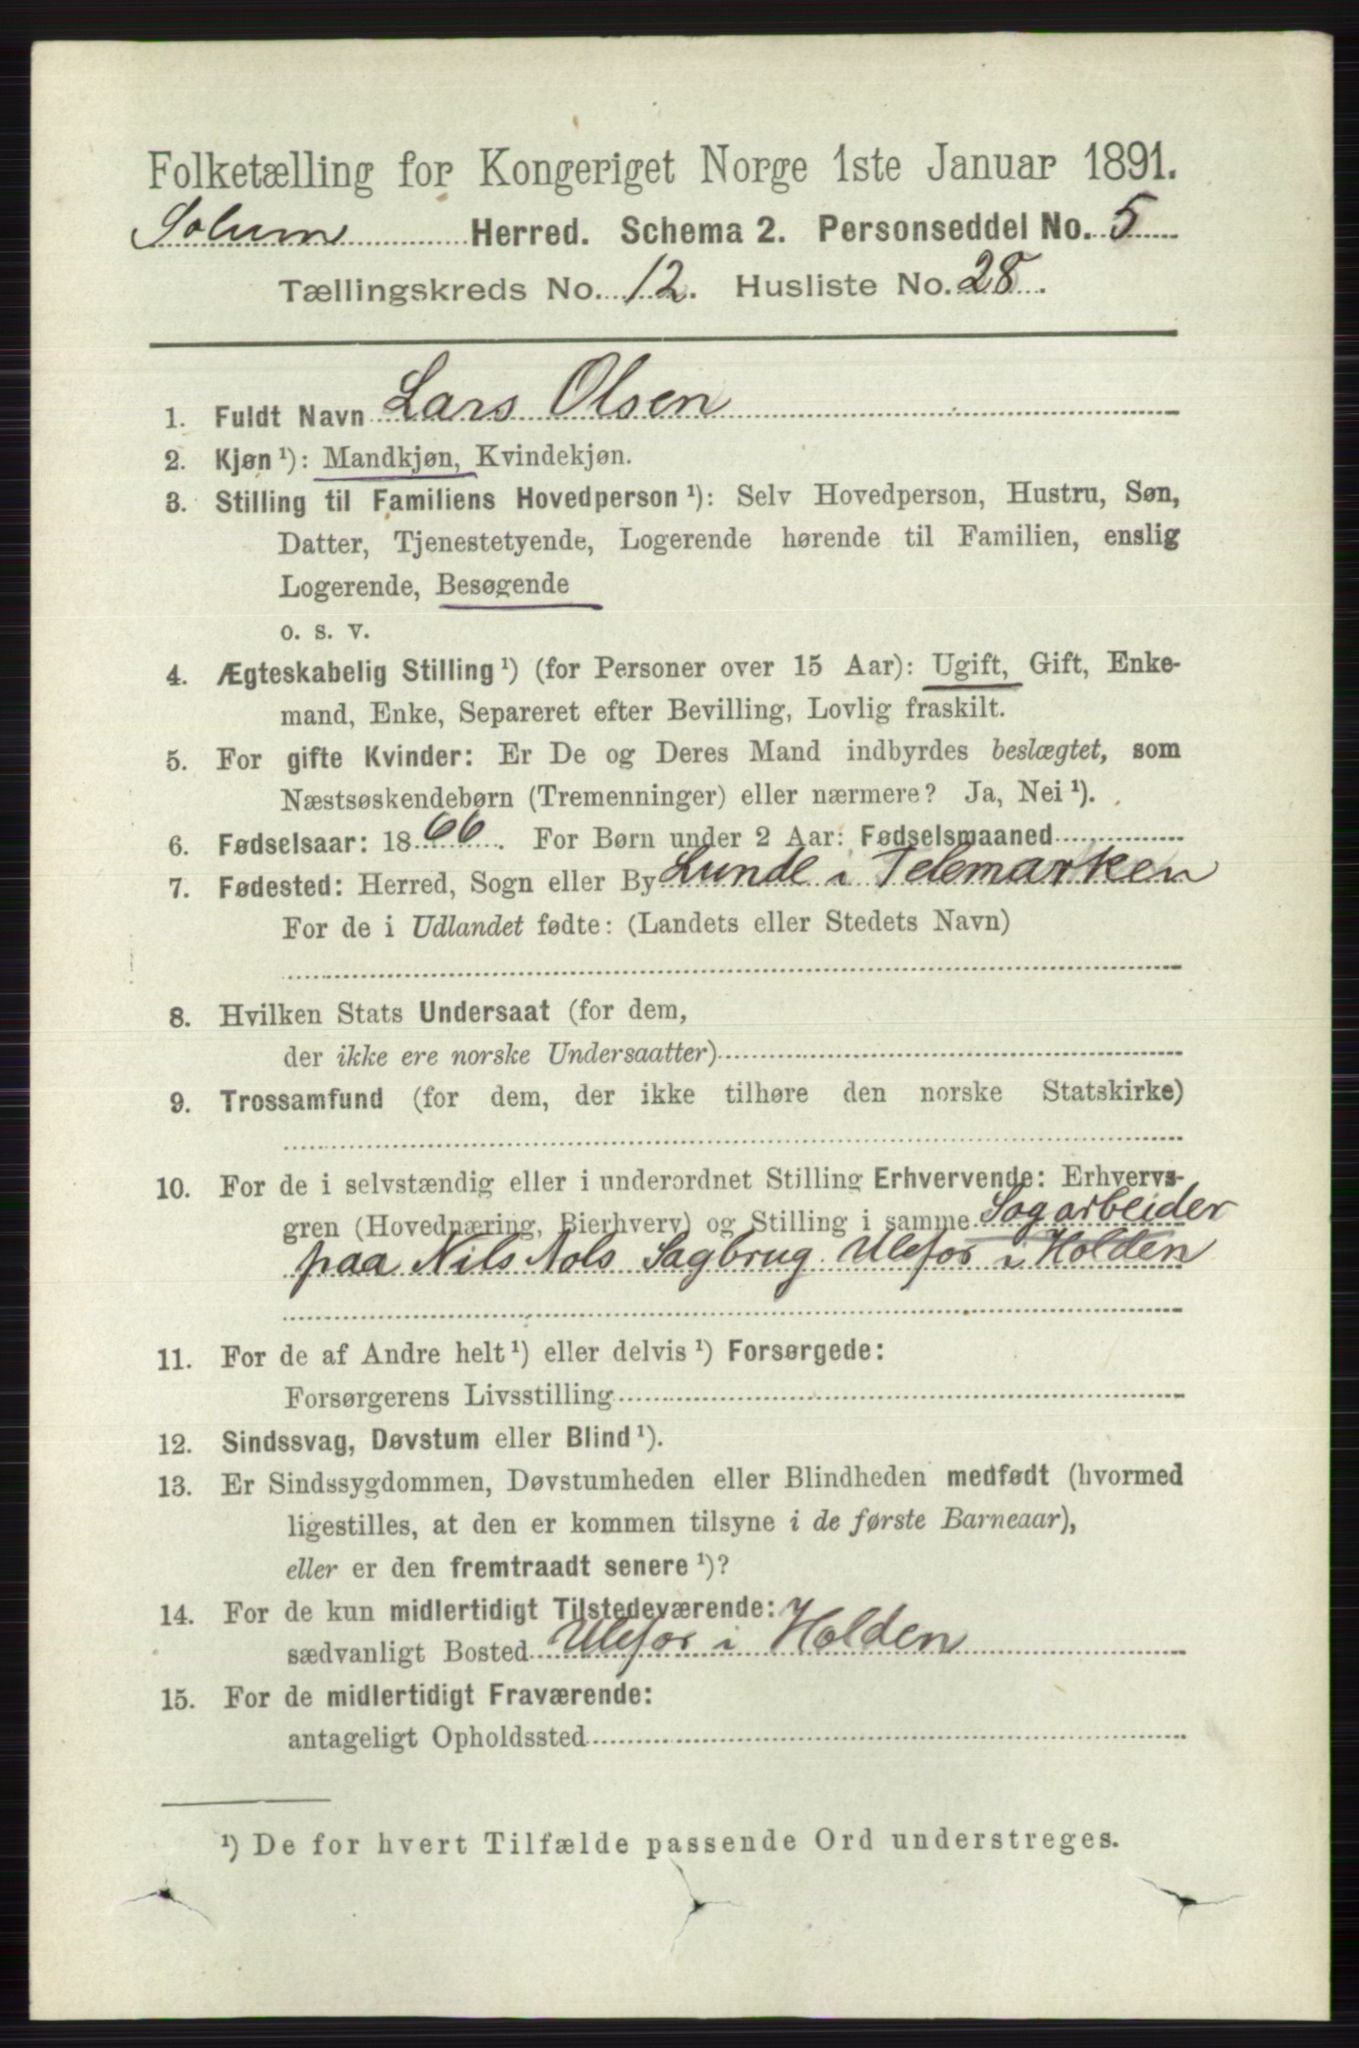 Folketælling for Kongeriget Norge 1ste Januar 1891.
Solum Herred. Schema 2. Personseddel No. 5
Tællingskreds No. 12. Husliste No. 28.
1. Fuldt Navn Lars Olsen
2. Kjøn ¹): Mandkjøn, Kvindekjøn.
3. Stilling til Familiens Hovedperson ¹): Selv Hovedperson, Hustru, Søn,
Datter, Tjenestetyende, Logerende hørende til Familien, enslig
Logerende, Besøgende
o. s. v.
4. Ægteskabelig Stilling ¹) (for Personer over 15 Aar): Ugift, Gift, Enke-
mand, Enke, Separeret efter Bevilling, Lovlig fraskilt.
5. For gifte Kvinder: Er De og Deres Mand indbyrdes beslægtet, som
Næstsøskendebørn (Tremenninger) eller nærmere? Ja, Nei ¹).
6. Fødselsaar: 1866. For Børn under 2 Aar: Fødselsmaaned
7. Fødested: Herred, Sogn eller By Lunde i Telemarken
For de i Udlandet fødte: (Landets eller Stedets Navn)
8. Hvilken Stats Undersaat (for dem,
der ikke ere norske Undersaatter)
9. Trossamfund (for dem, der ikke tilhøre den norske Statskirke)
10. For de i selvstændig eller i underordnet Stilling Erhvervende: Erhvervs-
gren (Hovednæring, Bierhverv) og Stilling i samme Sagarbeider
paa Nils Aals Sagbrug Ulefos i Holden
11. For de af Andre helt ¹) eller delvis ¹) Forsørgede:
Forsørgerens Livsstilling
12. Sindssvag, Døvstum eller Blind ¹).
13. Er Sindssygdommen, Døvstumheden eller Blindheden medfødt (hvormed
ligestilles, at den er kommen tilsyne i de første Barneaar),
eller er den fremtraadt senere ¹)?
14. For de kun midlertidigt Tilstedeværende:
sædvanligt Bosted Ulefos i Holden
15. For de midlertidigt Fraværende:
antageligt Opholdssted
¹) De for hvert Tilfælde passende Ord understreges.